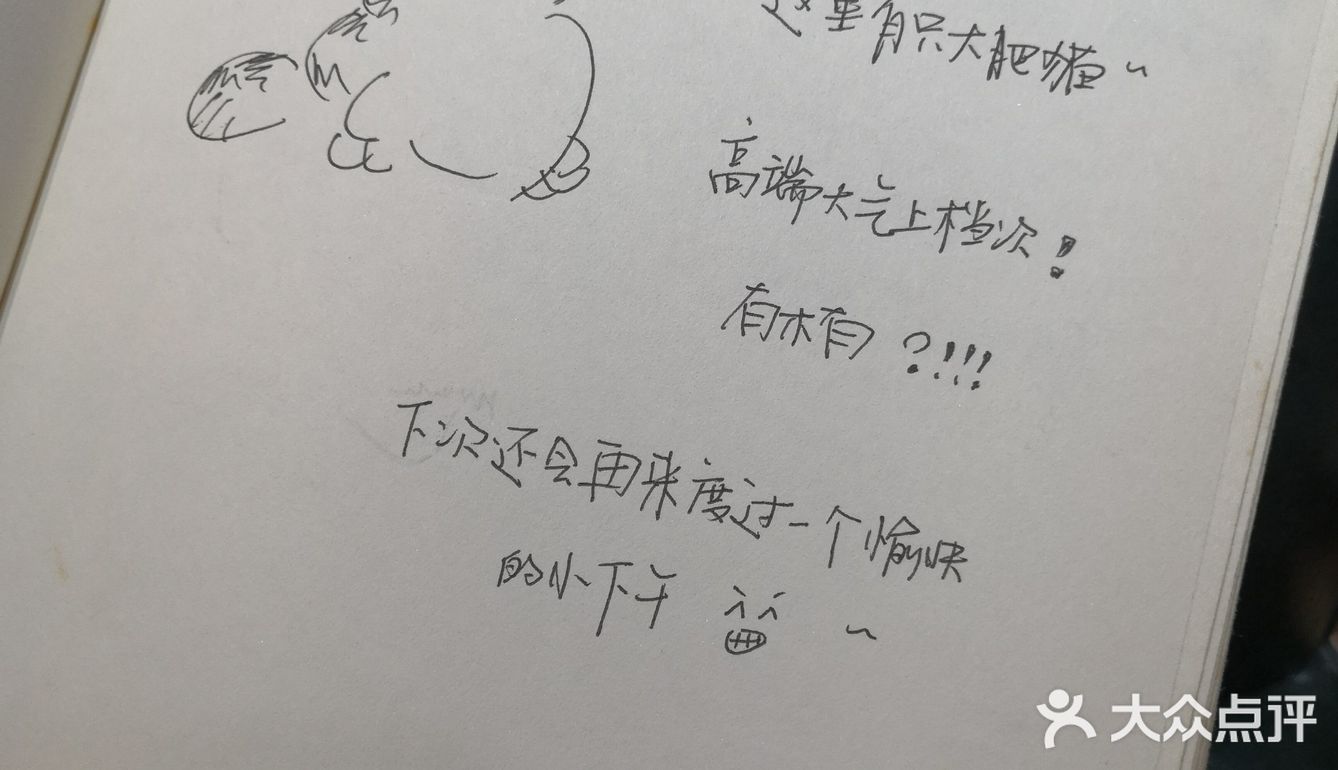 这里有只大肥猫~
高端大气上档次!
有木有?!!!
下次还会再来度过一个愉快
的小下午 ~
大众点评